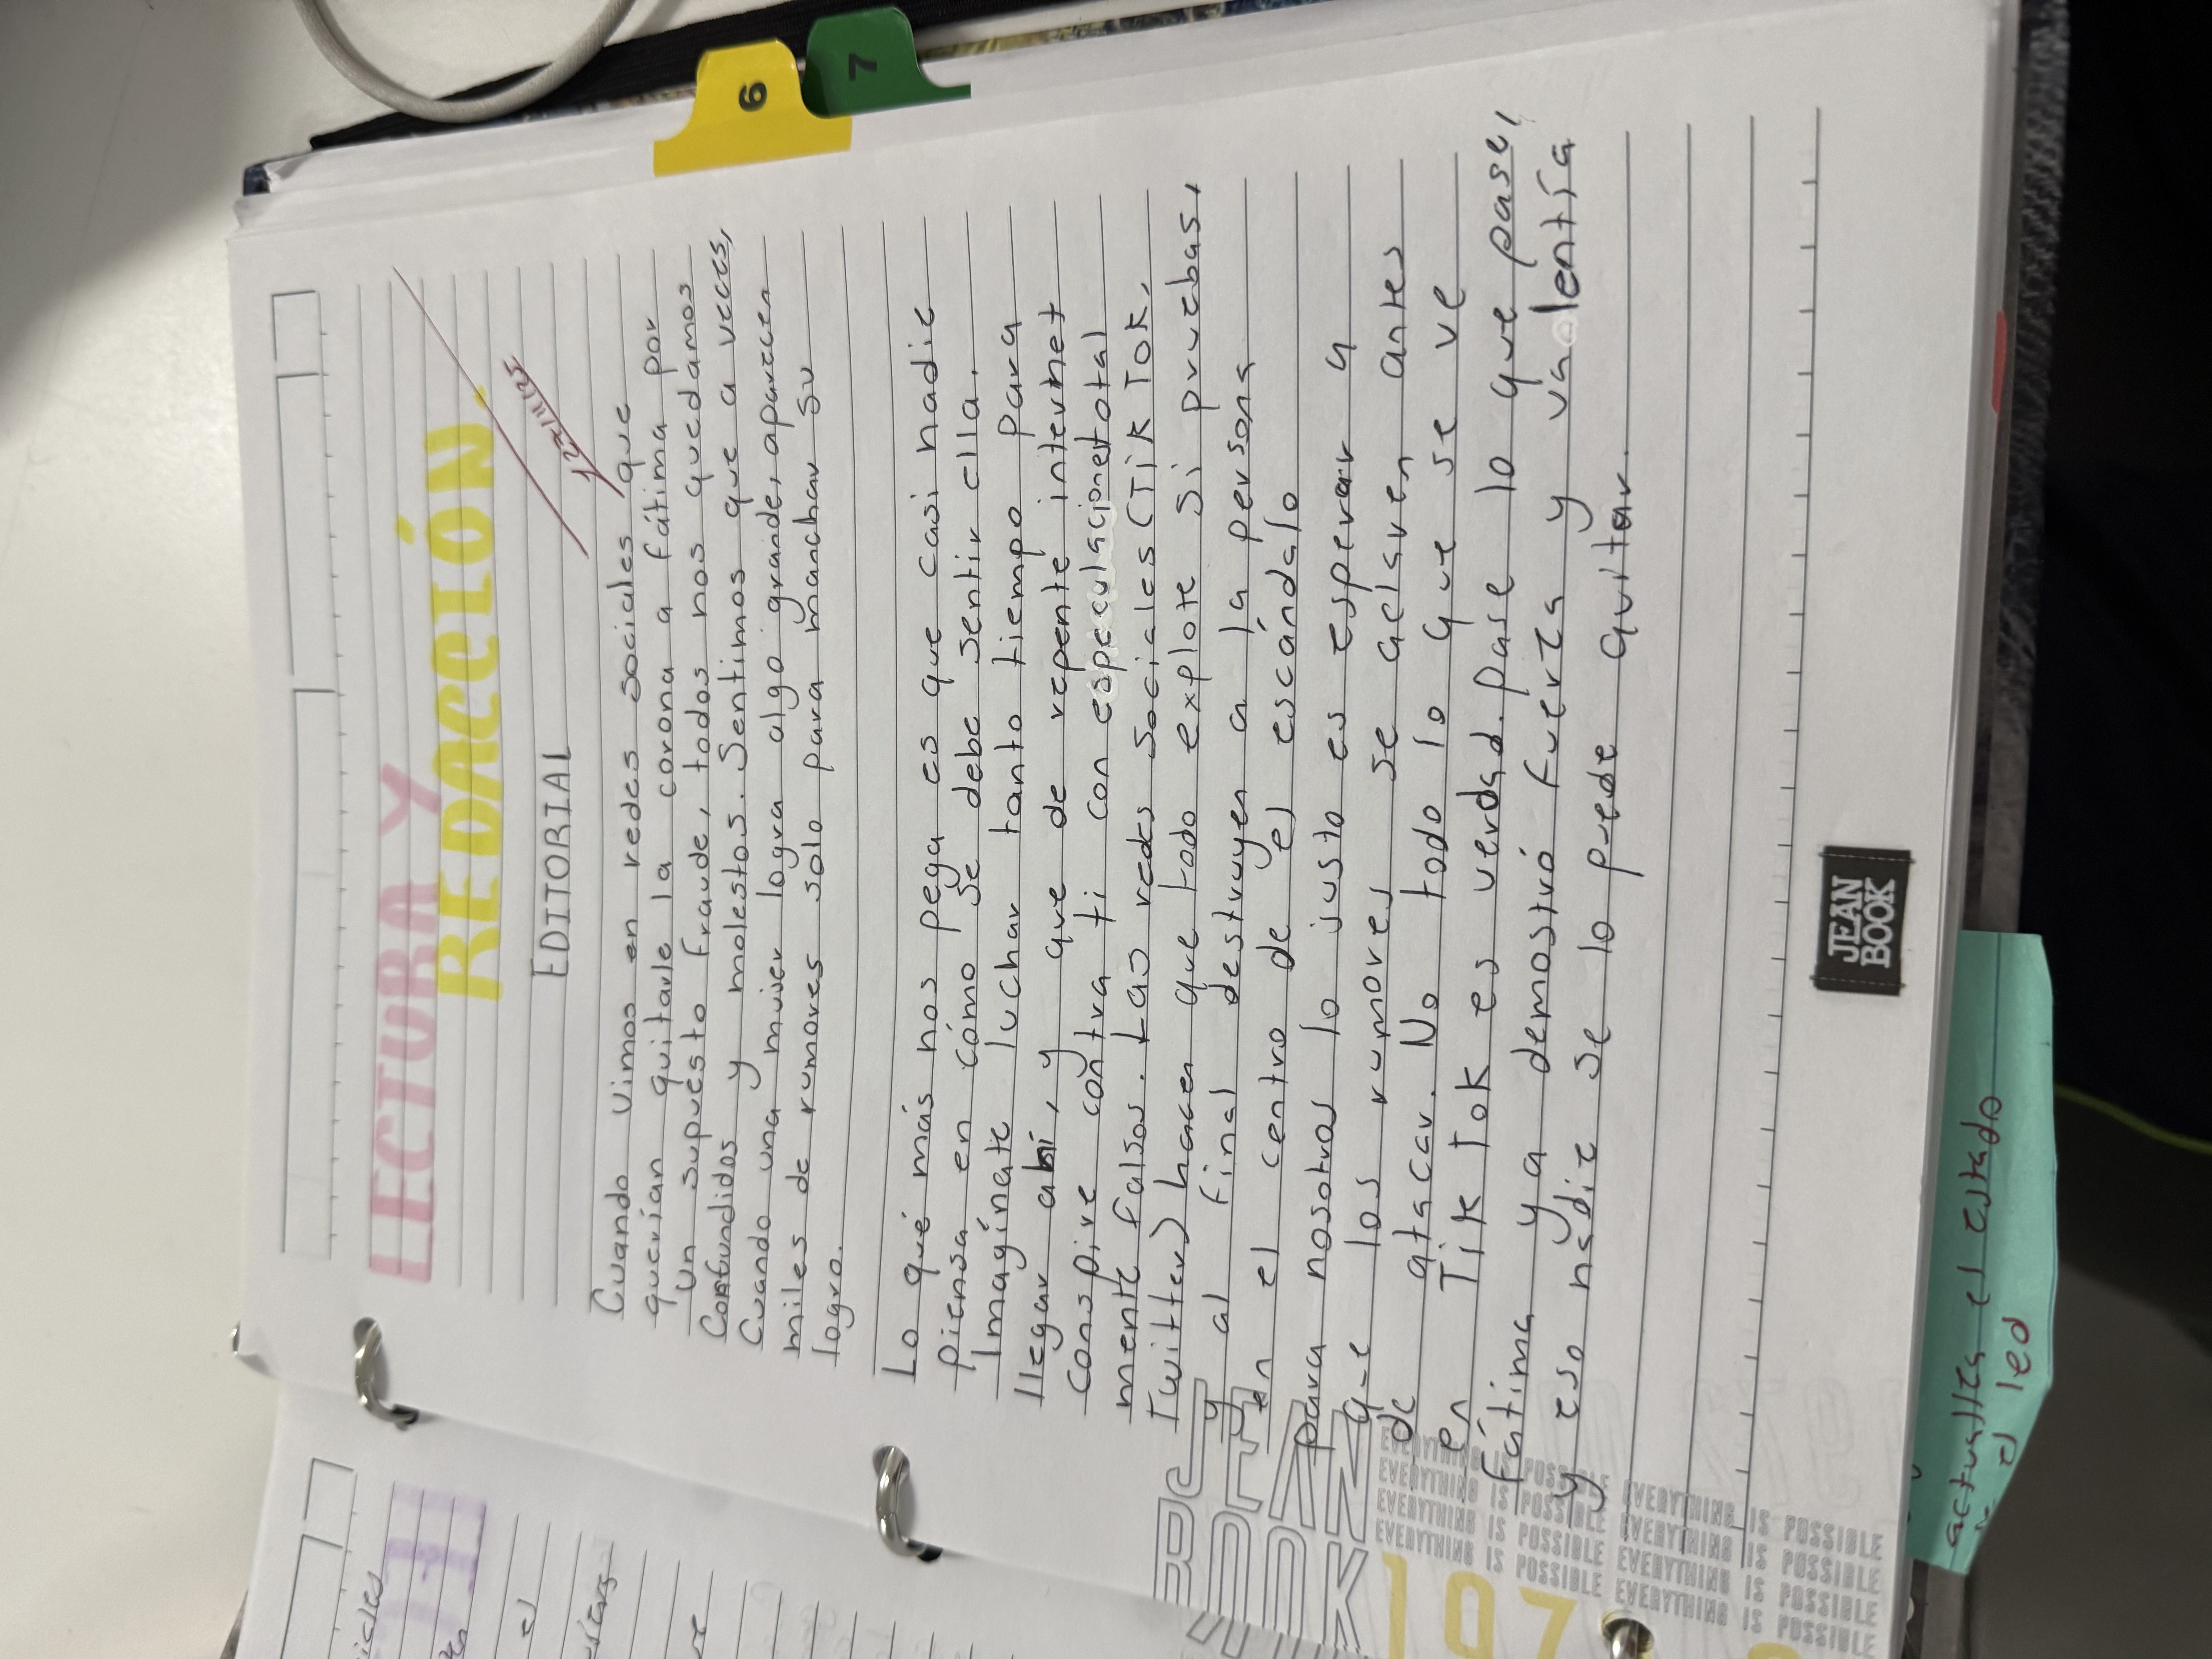 LECTURA Y
REDACCIÓN.
27/11/25
EDITORIAL
Cuando vimos en redes sociales que
querían quitarle la corona a Fátima por
un supuesto fraude, todos nos quedamos
confundidos y molestos. Sentimos que a veces,
cuando una mujer logra algo grande, aparecen
miles de rumores solo para manchar su
logro.
Lo qué más nos pega es que casi nadie
piensa en cómo se debe sentir ella.
Imagínate luchar tanto tiempo para
llegar ahí, y que de repente internet
conspire contra ti con especulaciones total
mente falsos. Las redes sociales (Tik Tok,
Twitter) hacen que todo explote si pruebas,
y al final destruyen a la persona
en el centro de el escándalo
para nosotros lo justo es esperar a
que los rumores se aclaren antes
de atacar. No todo lo que se ve
en Tik Tok es verdad. Pase lo que pase,
Fátima ya demostró fuerza y valentía
y eso nadie se lo puede quitar.
6
7
JEAN
BOOK
actualiza el estado
el led
EVERYTHING IS POSSIBLE EVERYTHING IS POSSIBLE
EVERYTHING IS POSSIBLE EVERYTHING IS POSSIBLE
EVERYTHING IS POSSIBLE EVERYTHING IS POSSIBLE
EVERYTHING IS POSSIBLE EVERYTHING IS POSSIBLE
107
el